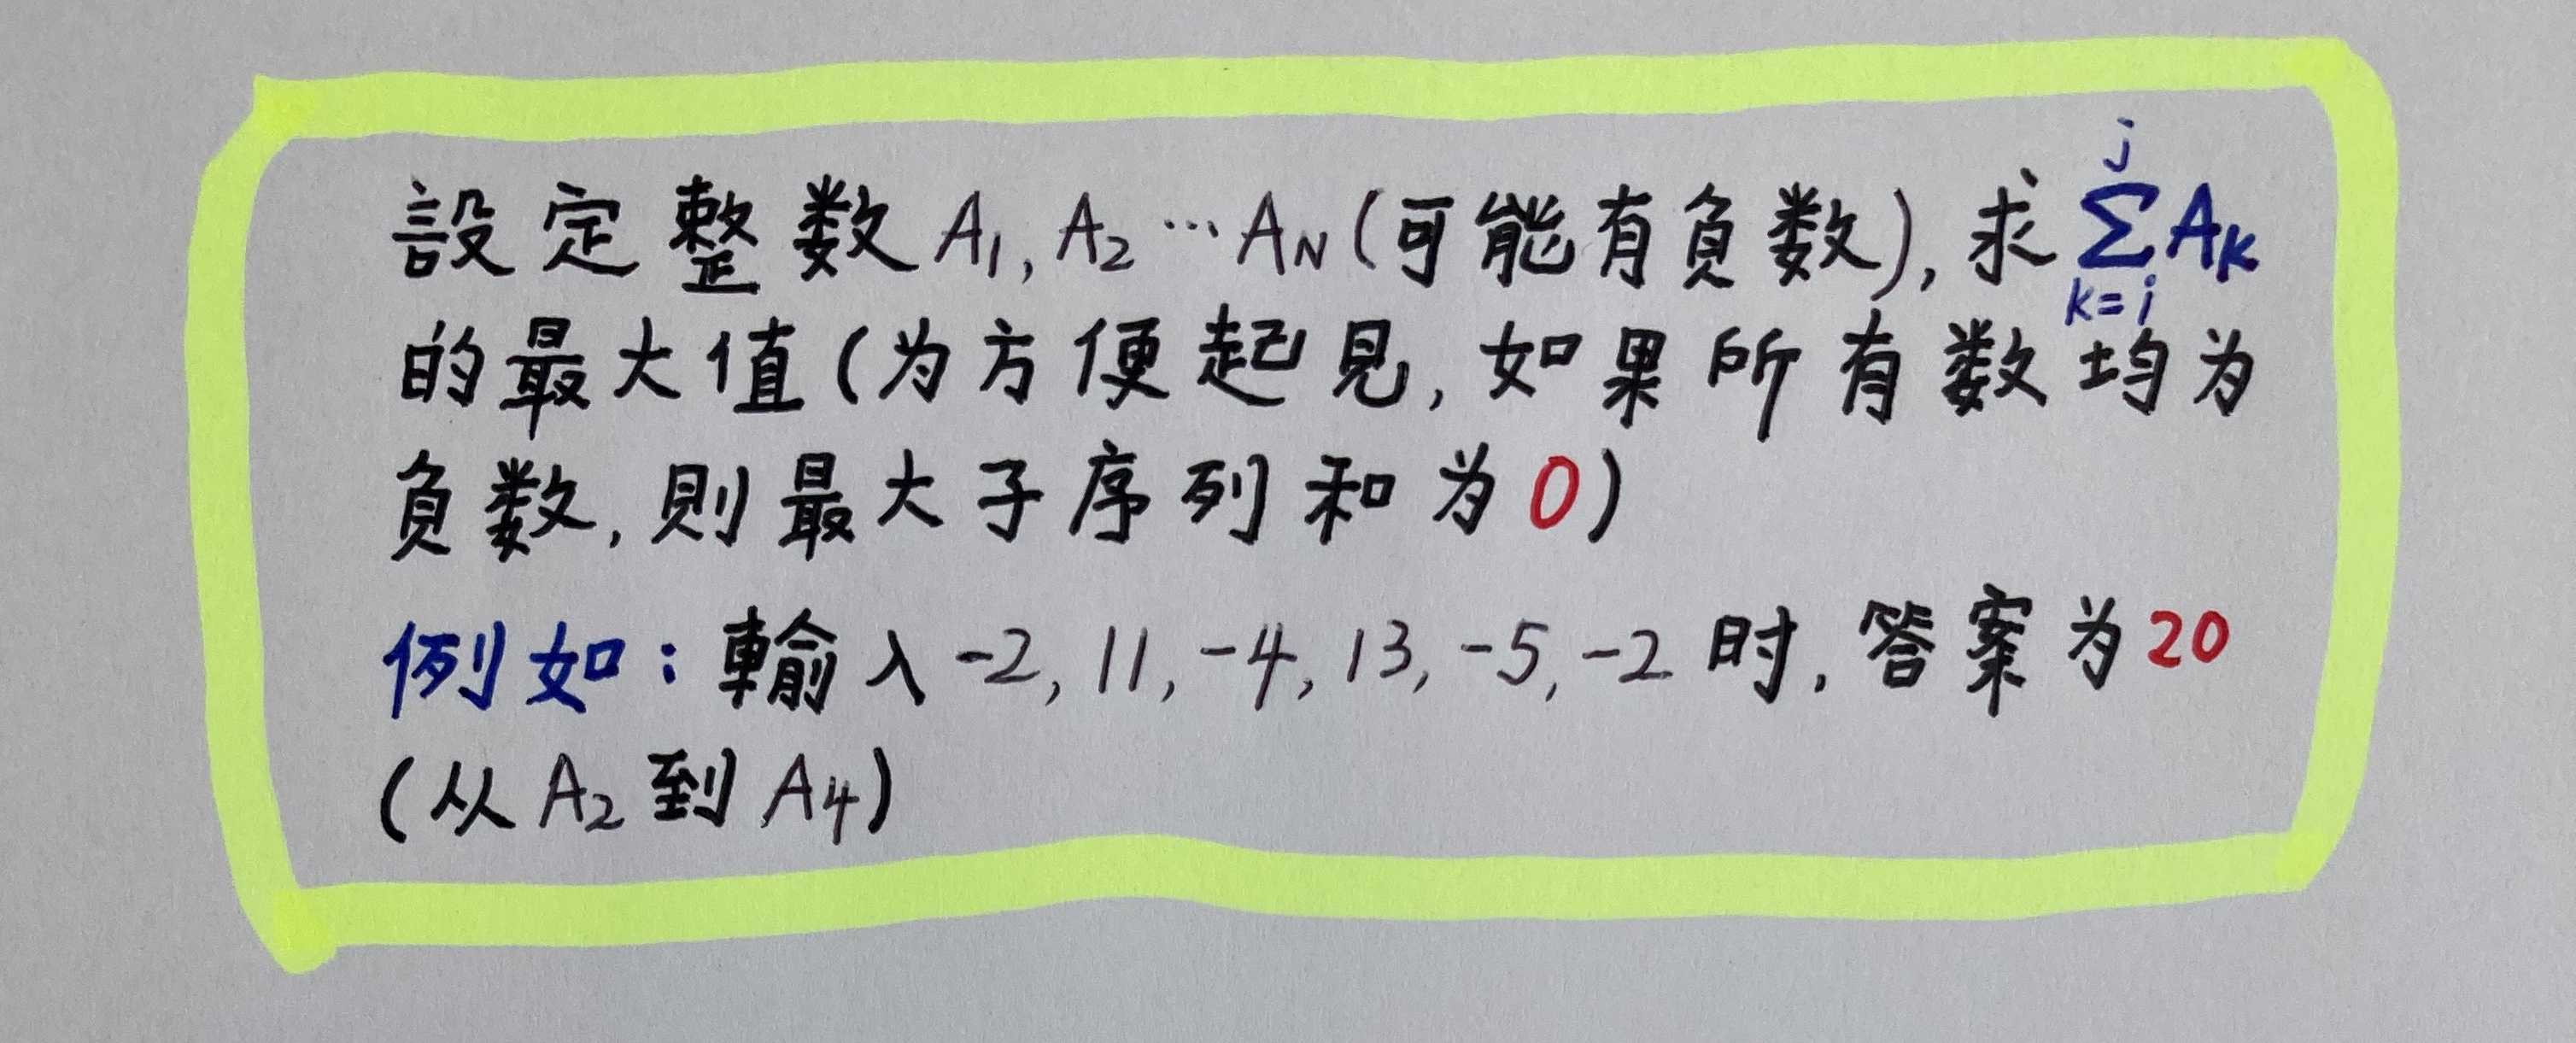 設定整数A₁, A₂…A_N(可能有負数), 求∑_{k=i}^{j}A_k
的最大值(为方便起見, 如果所有数均为
負数, 則最大子序列和为0)
例如: 輸入-2, 11, -4, 13, -5, -2时, 答案为20
(从A₂到A₄)